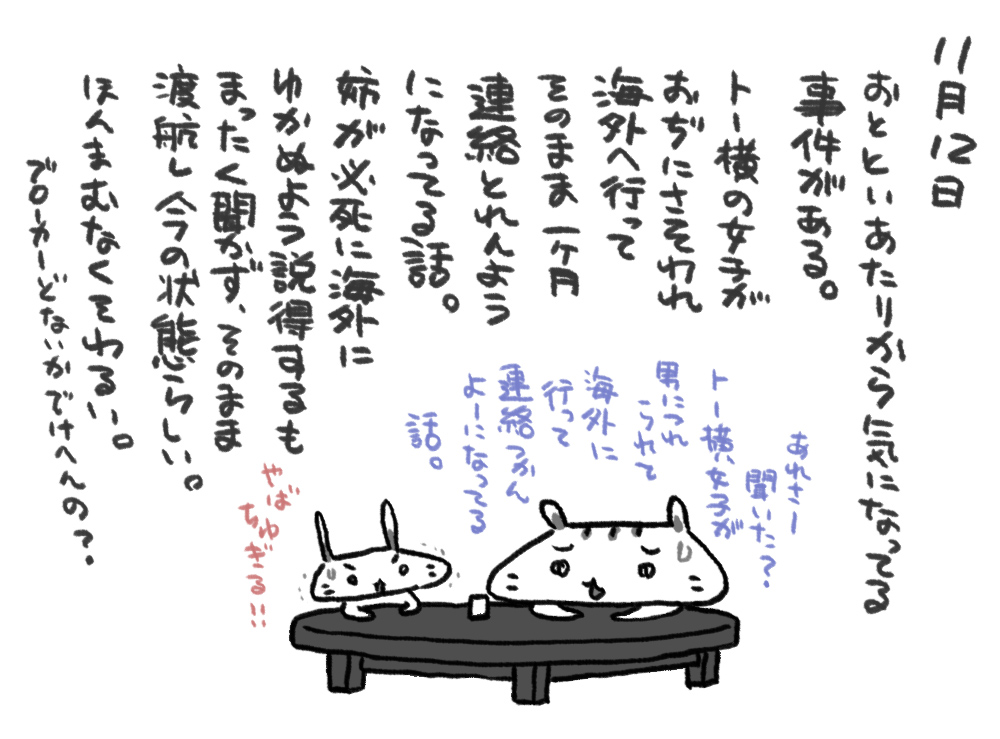 11月12日
おとといあたりから気になってる
事件がある。
トー横の女子が
おぢにさそわれ
海外へ行って
そのまま一ヶ月
連絡とれんよう
になってる話。
姉が必死に海外に
ゆかぬよう説得するも
まったく聞かず、そのまま
渡航し今の状態らしい。
ほんまむなくそわるい。
ブローカーどないかでけへんの？.
あれさー
聞いた？.
トー横、女子が
男につれ
こられて
海外に
行って
連絡つかん
よーになってる
話。
やば
ちゅぎる!!